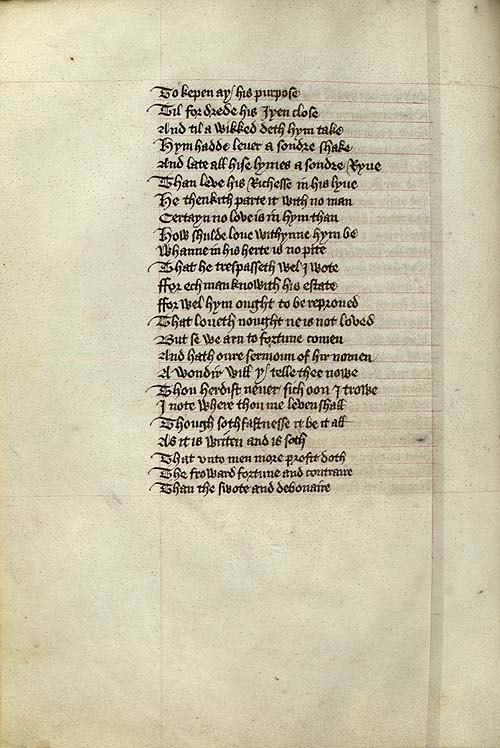 To kepen ay his purpose
Til for drede his Iyen close
And til a wikked deth hym take
Hym hadde lever a sondre shake
And late all hise lymes a sondre Ryve
Than leve his Richesse in his lyve
He thenkith parte it with no man
Certayn no love is in hym than
How shulde love withynne hym be
Whanne in his herte is no pite
That he trespasseth wel I wote
ffor ech man knowith his estate
ffor wel hym ought to be reproved
That loveth nought ne is not loved
But se we arn to fortune comen
And hath oure sermoun of hir nomen
A wondir will y telle thee nowe
Thou herdist never sich oon I trowe
I note where thou me leven shall
Though sothfastnesse it be it all
As it is writen and is soth
That unto men more profit doth
The froward fortune and contraire
Than the swote and debonaire